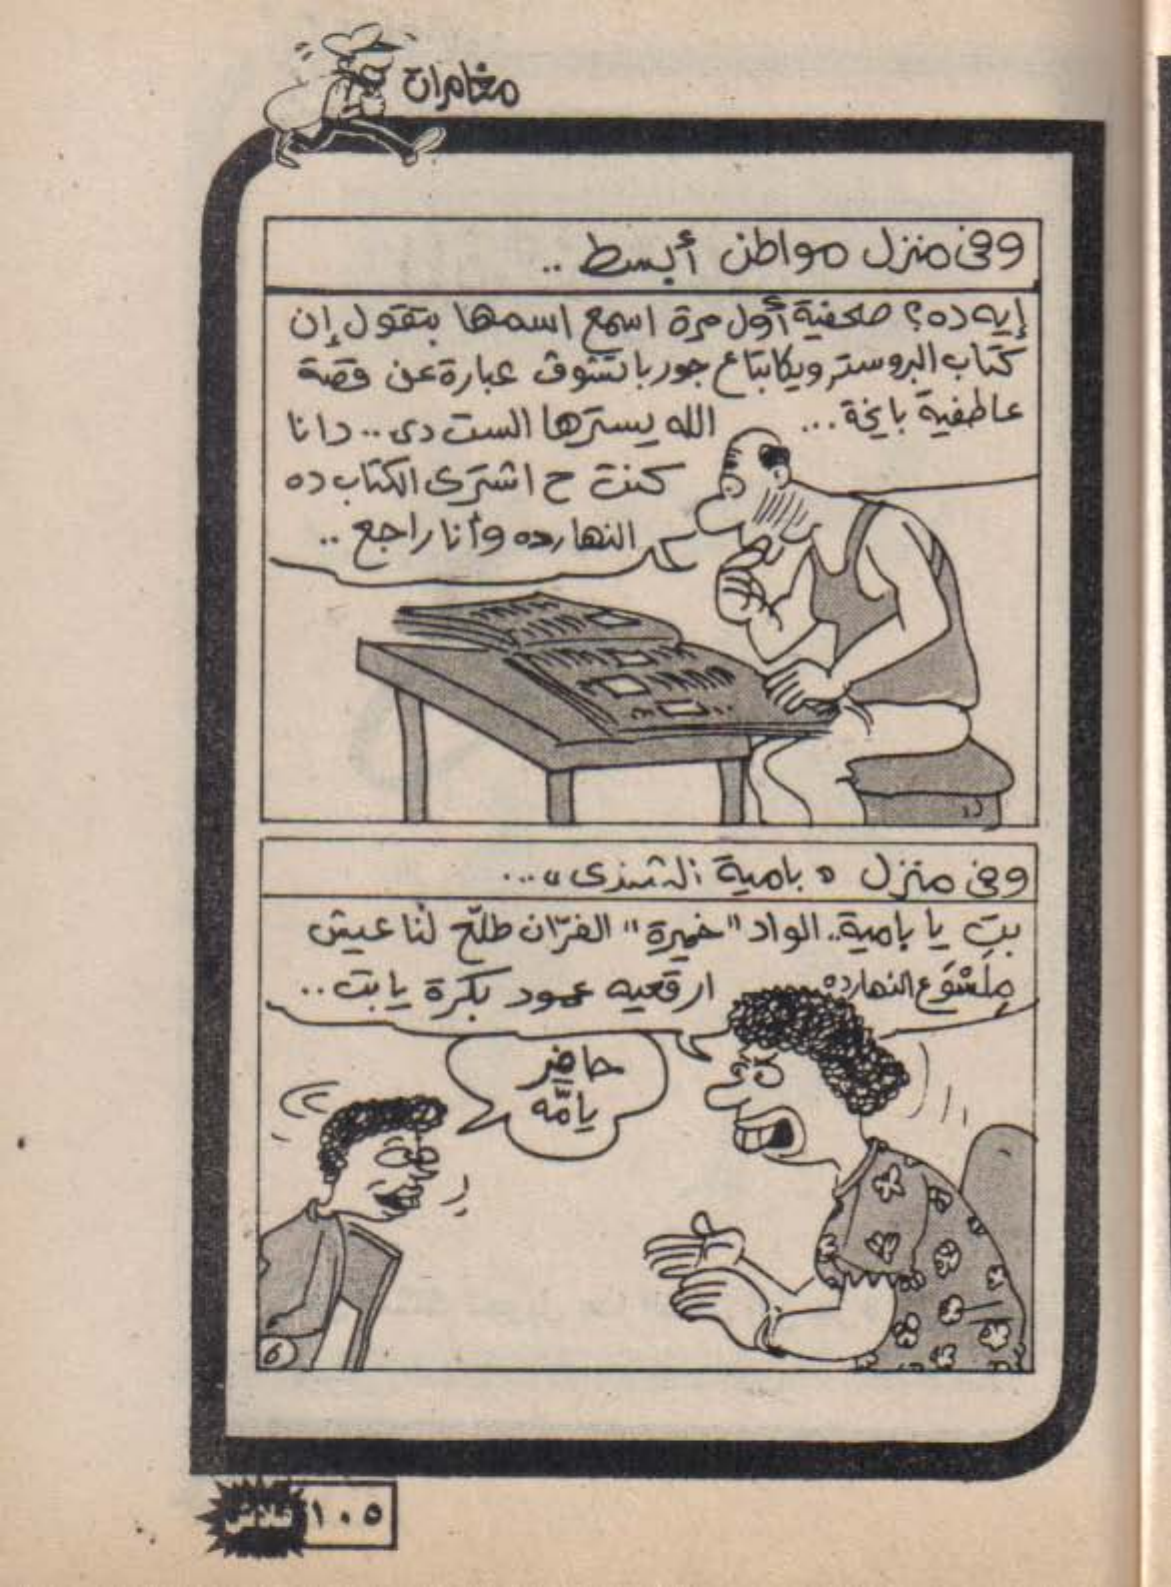 مغامرات
وفى منزل مواطن أبسط ..
إيه ده؟ صحفية أول مرة اسمع اسمها بتقول إن
كتاب البروسترويكا بتاع جورباتشوف عبارة عن قصة
عاطفية بايخة...
الله يسترها الست دى.. دانا
كنت ح اشترى الكتاب ده
النهارده وأنا راجع ..
وفى منزل « بامية الشندى »...
بت يا بامية.. الواد "خميرة" الفرّان طلّع لنا عيش
ملسْوَع النهارده
ارقعيه عمود بكرة يا بت..
حاضر
يامّه
6
فلاش
١٠٥